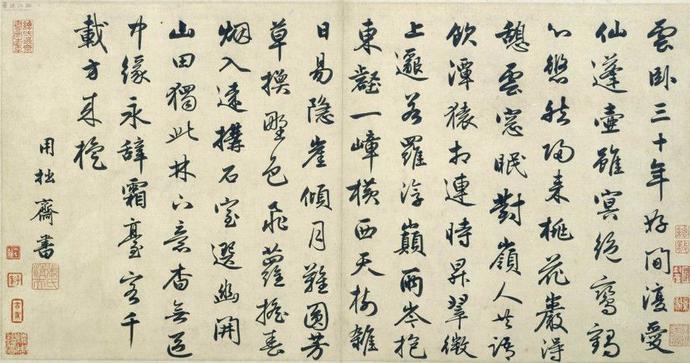 雲卧三十年好閒復愛
仙蓬壺雖冥絕鸞鶴
心悠然歸來桃花巖得
憩雲窓眠對嶺人共語
飲潭猿相連時昇翠微
上邈若羅浮巔兩岑抱
東壑一嶂横西天樹雜
日易隱崖傾月難圓芳
草換野色飛蘿搖春
烟入遠構石室選幽開
山田獨此林下意杳無區
中緣永辭霜臺客千
載方來旋
用拙齋書